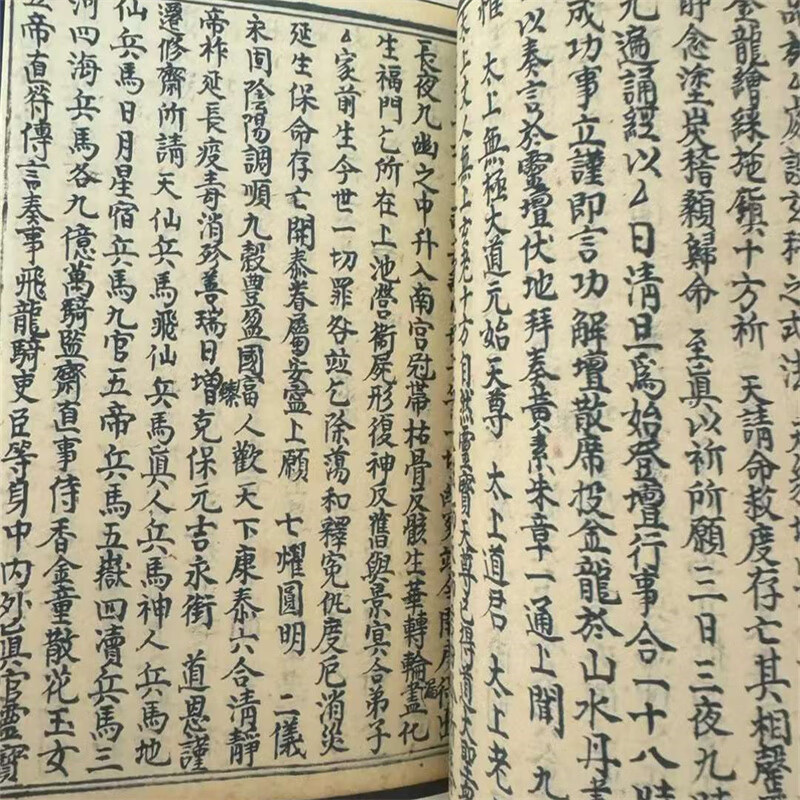 處請玄科之式法
金龍繪綵施鎮十方祈 天請命救度存亡其相罄
靜念塗炭稽顙歸命 至真以祈所願三日三夜九時
九遍誦經以厶日清旦爲始登壇行事合一十八時
成功事立謹即言功解壇散席投金龍於山水丹書
以奏言於靈壇伏地拜奏黃素朱章一通上聞 九
惟 太上無極大道元始天尊 太上道君 太上老
太上丈人無上玄老十方自然靈寶天尊已得道大聖
長夜九幽之中升入南宮冠帶枯骨反骸生華轉輪蓋化
生福門乞所在上池營衛屍形復神反舊與景冥合弟子
厶家前生今世一切罪咎竝乞除蕩和釋冤仇度厄消災
延生保命存亡開泰眷屬安寧上願 七耀圓明 二儀
永固陰陽調順九穀豊盈國富人歡天下康泰六合清靜
帝祚延長疫毒消殄善瑞日增克保元吉永銜 道恩謹
遷修齋所請天仙兵馬飛仙兵馬眞人兵馬神人兵馬地
仙兵馬日月星宿兵馬九宫五帝兵馬五嶽四瀆兵馬三
河四海兵馬各九億萬騎監齋直事侍香金童散花玉女
五帝直符傳言奏事飛龍騎吏臣等身中內外眞官靈寶